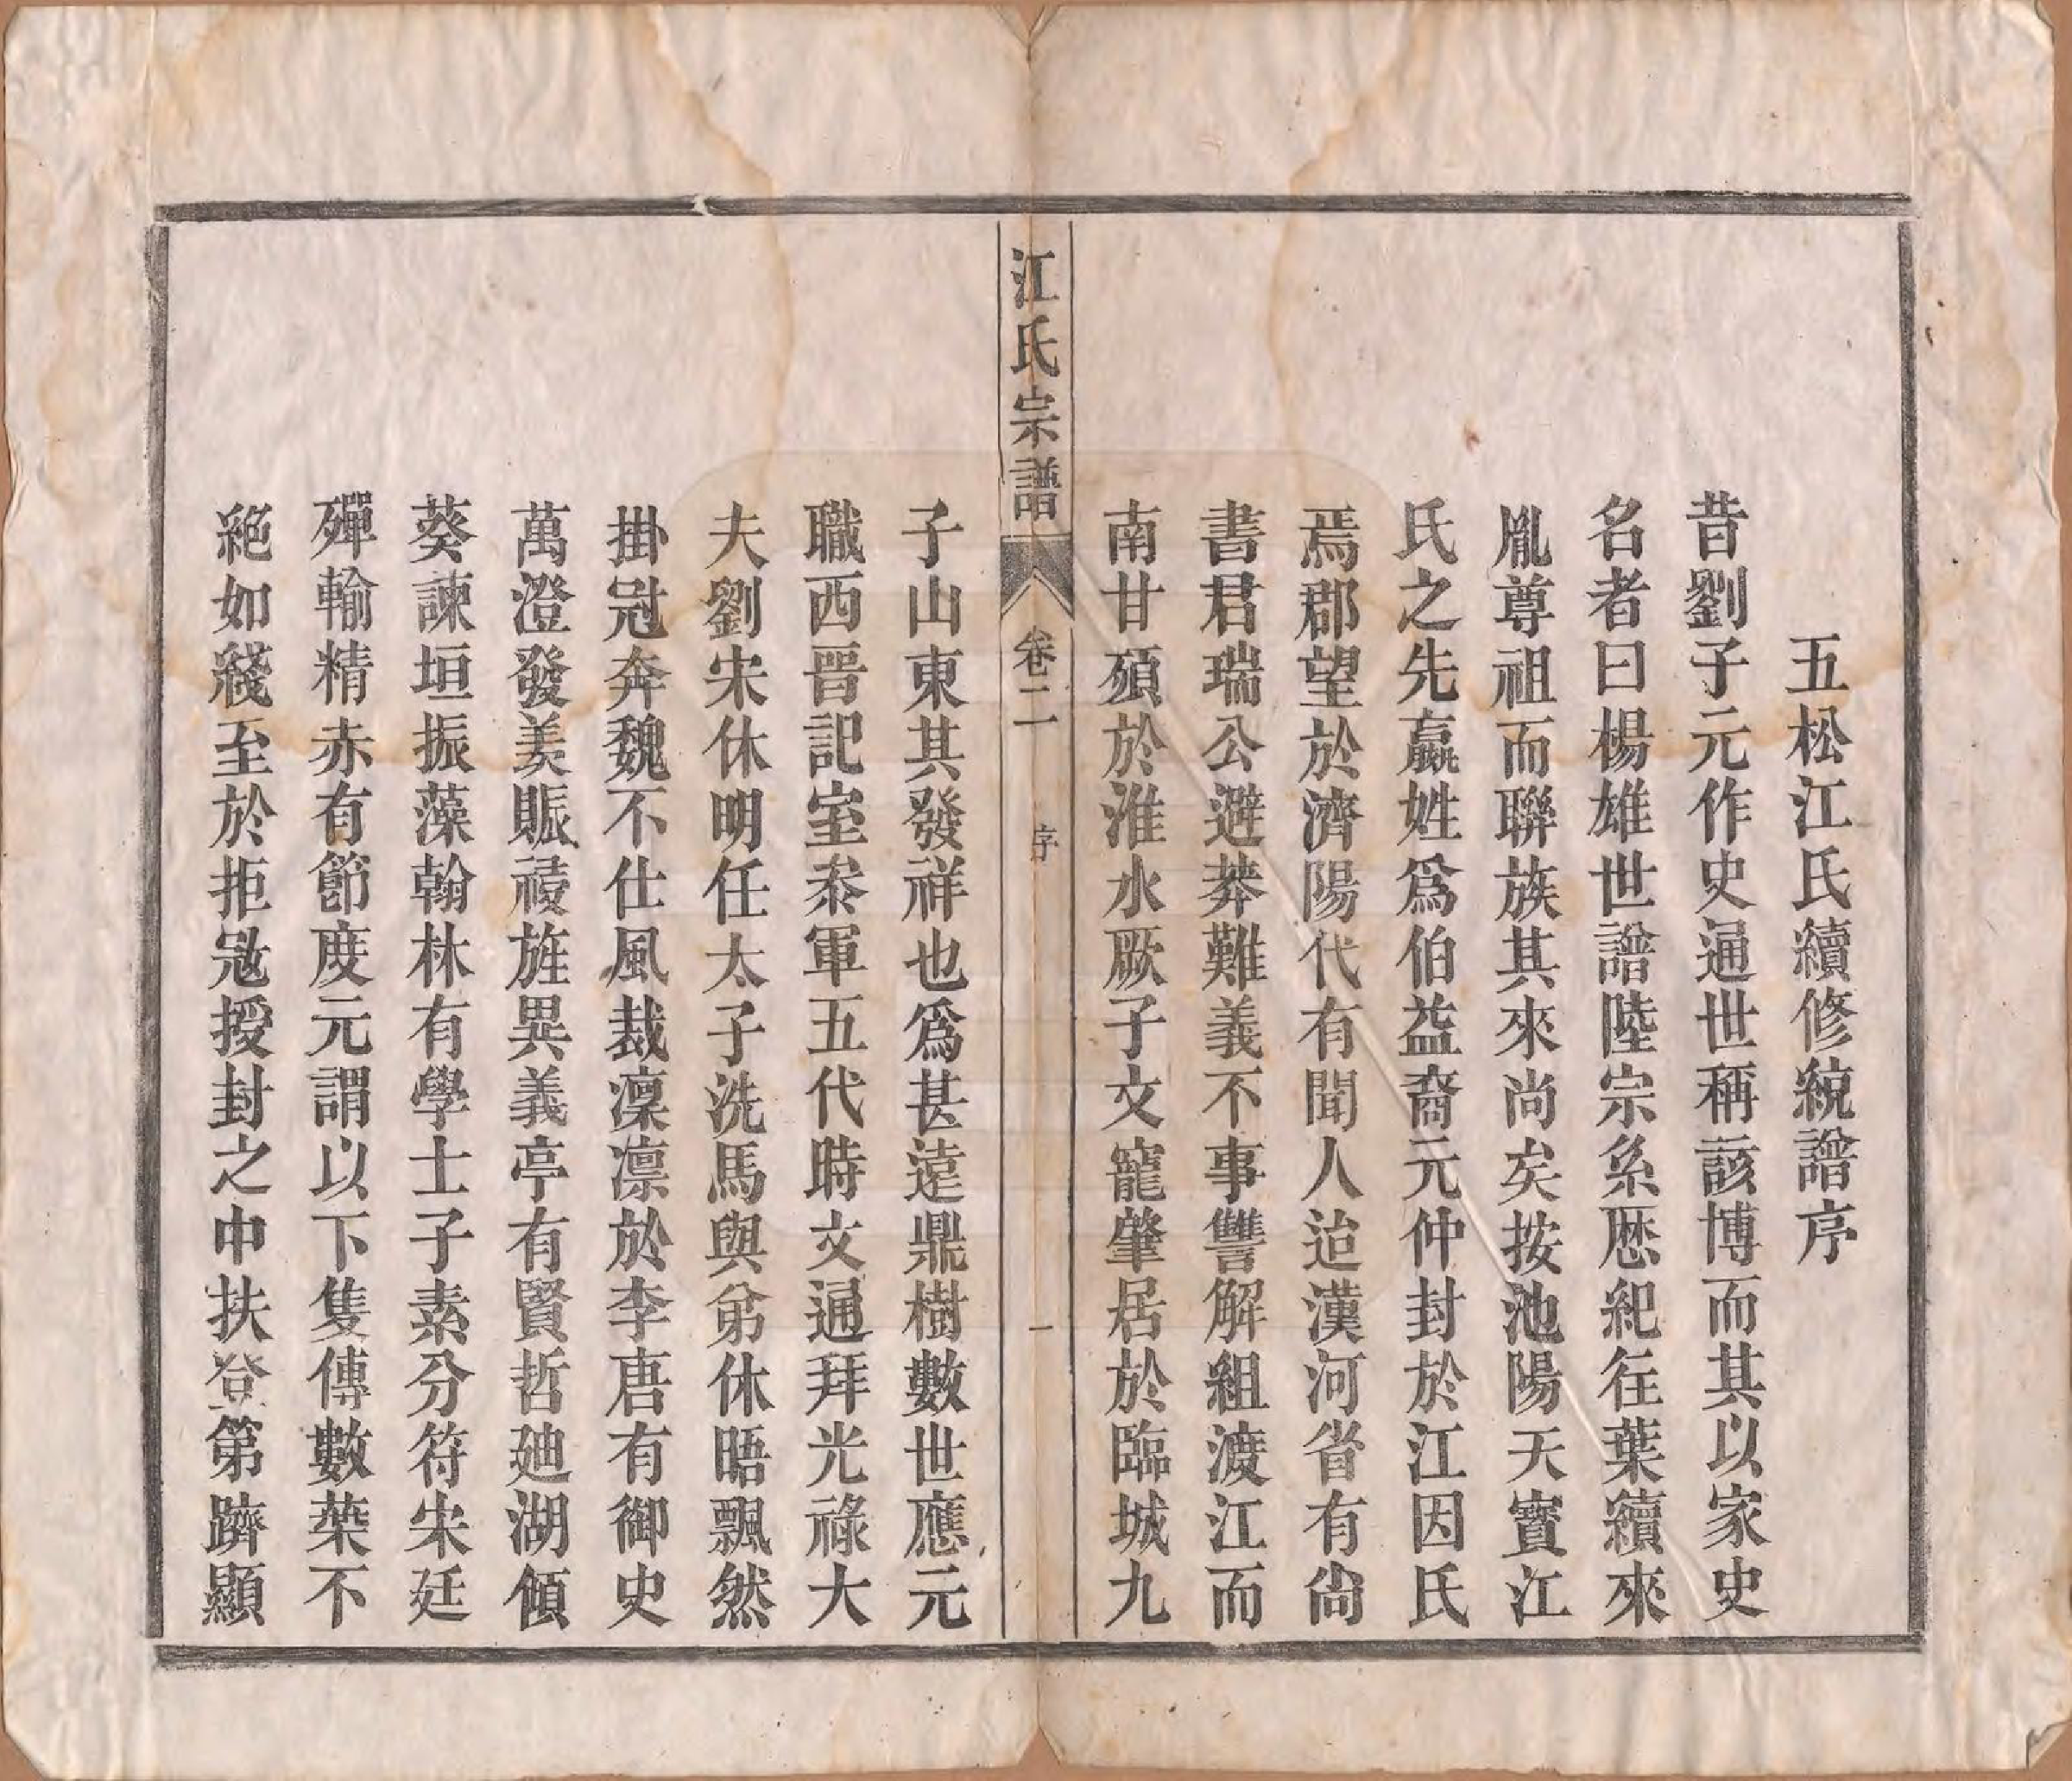 五松江氏續修統譜序
昔劉子元作史通世稱該博而其以家史
名者曰楊雄世譜陸宗系歷紀往葉續來
胤尊祖而聯族其來尚矣按池陽天寳江
氏之先嬴姓爲伯益裔元仲封於江因氏
焉郡望於濟陽代有聞人迨漢河省有尙
書君瑞公避莽難義不事讐解組渡江而
南甘殞於淮水厥子文寵肇居於臨城九
江氏宗譜
卷二
序
一
子山東其發祥也爲甚遠鼎樹數世應元
職西晋記室叅軍五代時文通拜光祿大
夫劉宋休明任太子洗馬與弟休晤飄然
掛冠奔魏不仕風裁凜凛於李唐有御史
萬澄發美賑祲旌異義亭有賢哲廸湖傾
葵諫垣振藻翰林有學士子素分符宋廷
殫輸精赤有節度元謂以下隻傳數葉不
絕如綫至於拒宼授封之中扶登第躋顯